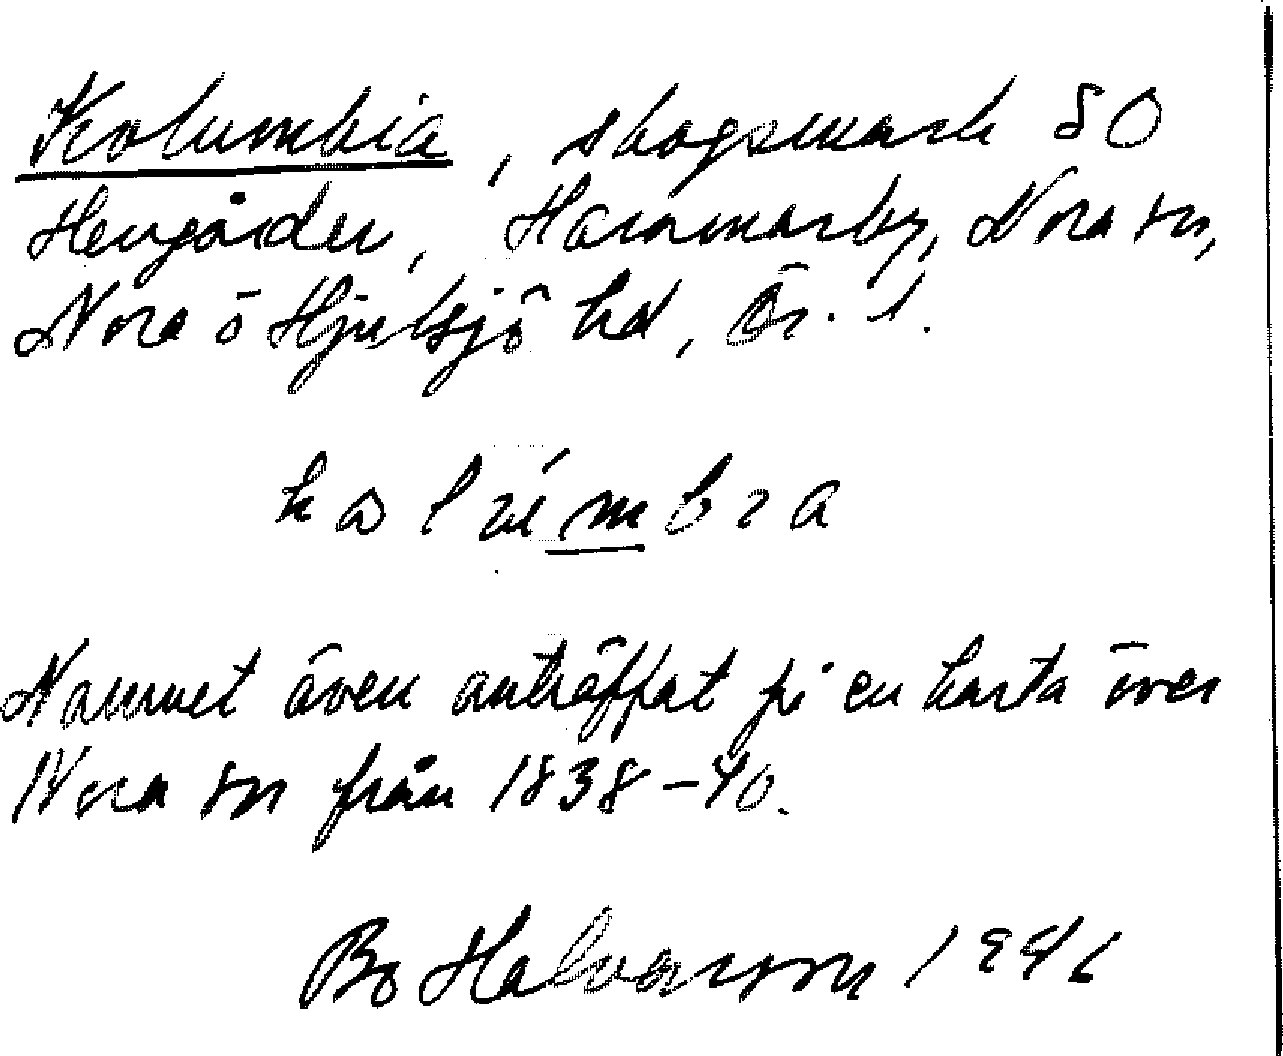 Kolumbia, skogsmark SO
Herrgården, Hammarby, Nora sn,
Nora o Hjulsjö hd, Ör. l.
Namnet även anträffat på en karta över
Nora sn från 1838-40.
Bo Halvarson 1946